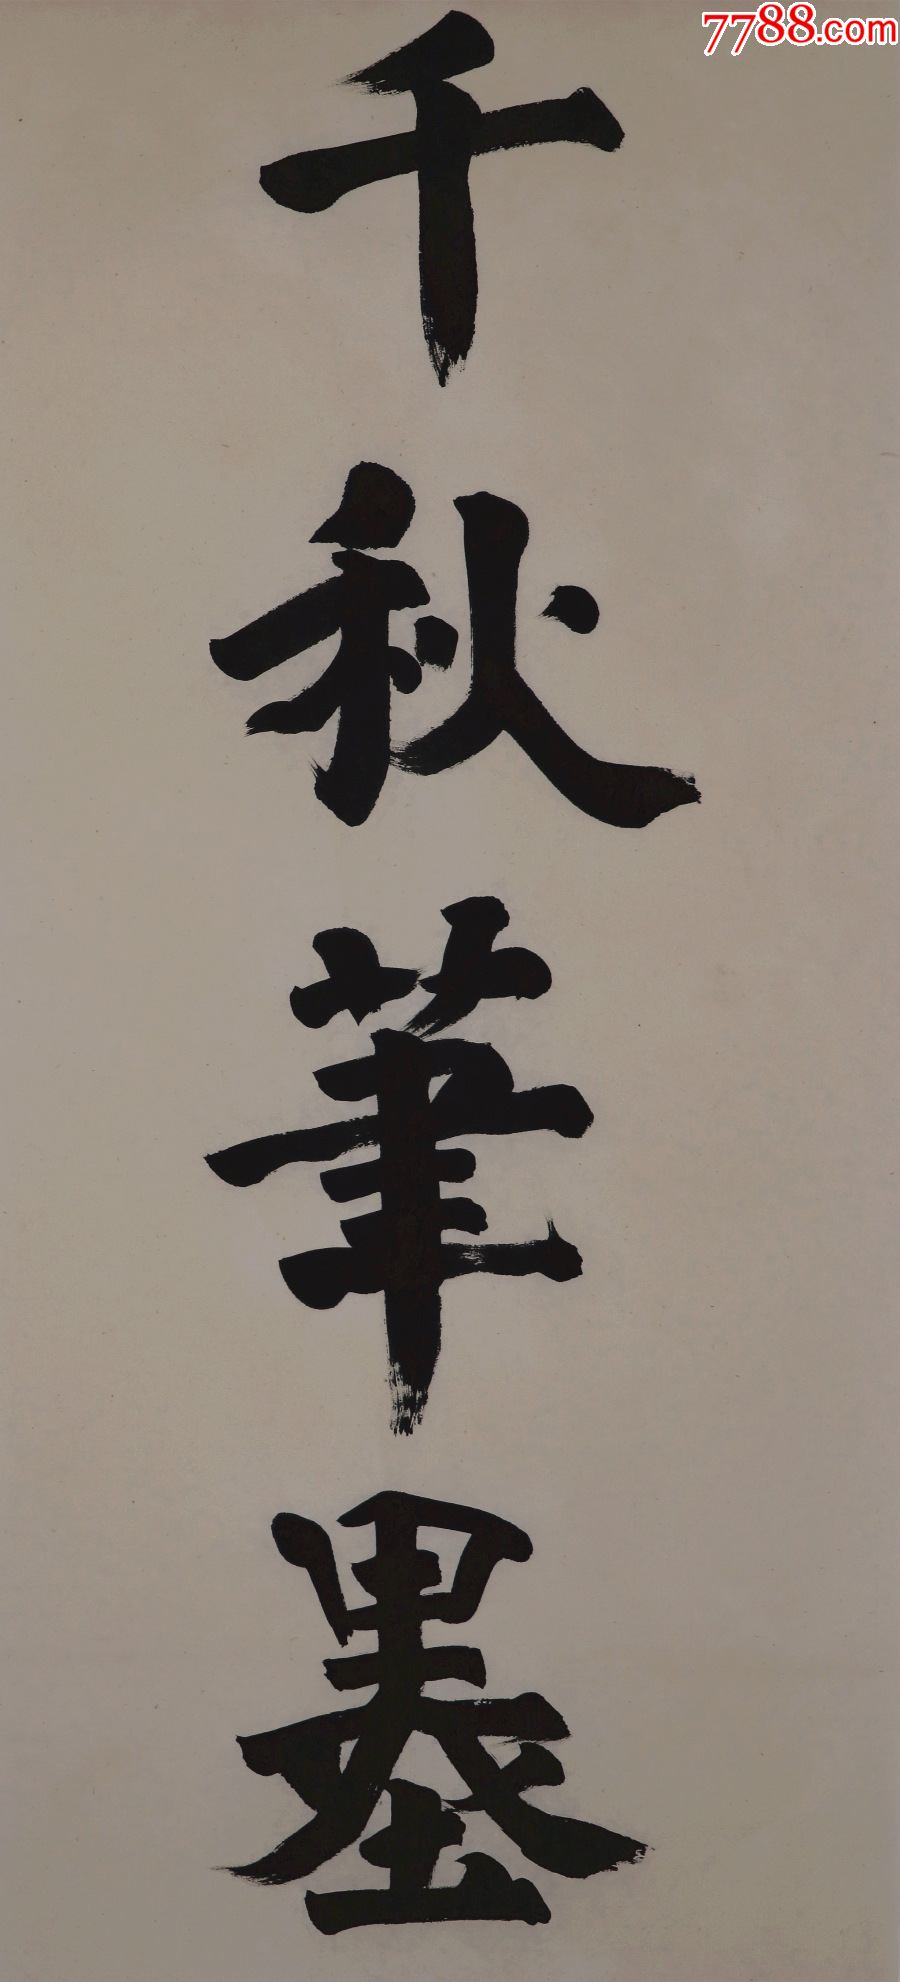 7788.com
千秋筆墨